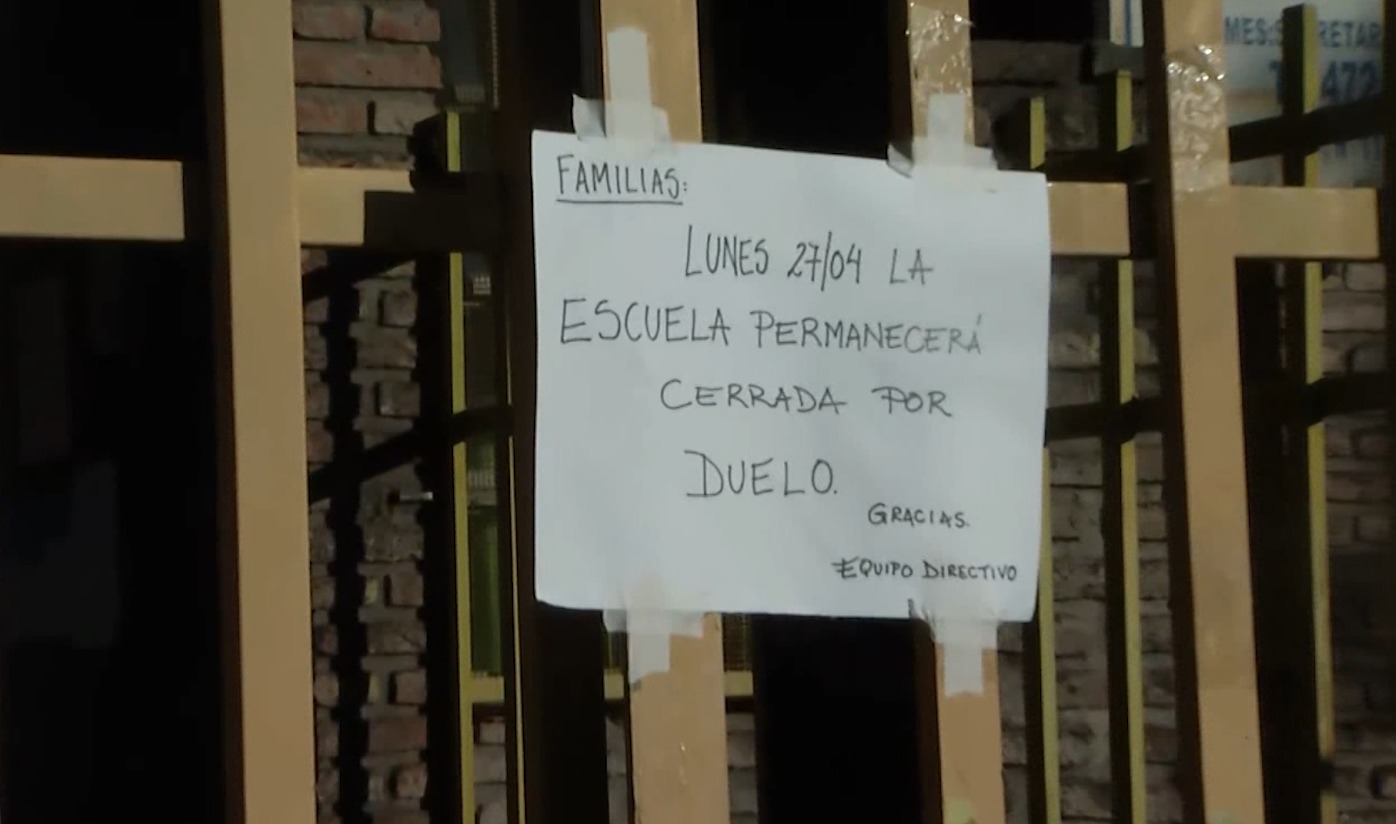 FAMILIAS:
LUNES 27/04 LA
ESCUELA PERMANECERÁ
CERRADA POR
DUELO.
GRACIAS.
EQUIPO DIRECTIVO
472